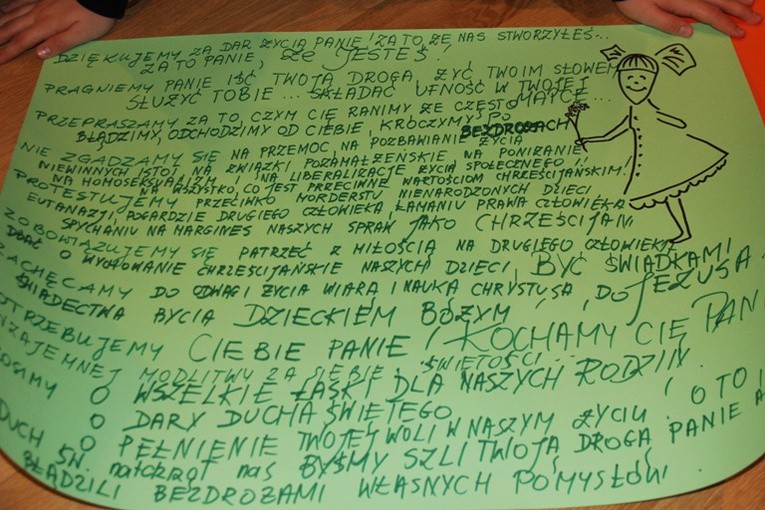 DZIĘKUJEMY ZA DAR ŻYCIA PANIE! ZA TO ŻE NAS STWORZYŁEŚ...
ZA TO PANIE, ŻE JESTEŚ!
PRAGNIEMY PANIE IŚĆ TWOJĄ DROGĄ, ŻYĆ TWOIM SŁOWEM
SŁUŻYĆ TOBIE... SKŁADAĆ UFNOŚĆ W TWOJEJ
MATCE...
PRZEPRASZAMY ZA TO, CZYM CIĘ RANIMY ŻE CZĘSTO
BŁĄDZIMY, ODCHODZIMY OD CIEBIE, KROCZYMY PO BEZDROŻACH
NIE ZGADZAMY SIĘ NA PRZEMOC, NA POZBAWIANIE ŻYCIA
NIEWINNYCH ISTOT NA ZWIĄZKI POZAMAŁŻEŃSKIE NA PONIŻANIE
NA HOMOSEKSUALIZM, NA LIBERALIZACJĘ ŻYCIA SPOŁECZNEGO!!
WSZYSTKO, CO JEST PRZECIWNE WARTOŚCIOM CHRZEŚCIJAŃSKIM!
PROTESTUJEMY PRZECIWKO MORDERSTWU NIENARODZONYCH DZIECI
EUTANAZJI, POGARDZIE DRUGIEGO CZŁOWIEKA, ŁAMANIU PRAWA CZŁOWIEKA
SPYCHANIU NA MARGINES NASZYCH SPRAW JAKO CHRZEŚCIJAN
ZOBOWIĄZUJEMY SIĘ PATRZEĆ Z MIŁOŚCIĄ NA DRUGIEGO CZŁOWIEKA
DBAĆ O WYCHOWANIE CHRZEŚCIJAŃSKIE NASZYCH DZIECI, BYĆ ŚWIADKAMI
JEZUSA
ZACHĘCAMY DO ODWAGI ŻYCIA WIARĄ I NAUKĄ CHRYSTUSA, DO
ŚWIADECTWA BYCIA DZIECKIEM BOŻYM
POTRZEBUJEMY CIEBIE PANIE! KOCHAMY CIĘ PANIE
WZAJEMNEJ MODLITWY ZA SIEBIE, ŚWIĘTOŚCI
PROSIMY O WSZELKIE ŁASKI DLA NASZYCH RODZIN
O DARY DUCHA ŚWIĘTEGO
O PEŁNIENIE TWOJEJ WOLI W NASZYM ŻYCIU! O TO I
DUCH ŚW. natchnął nas BYŚMY SZLI TWOJĄ DROGĄ PANIE A
BŁĄDZILI BEZDROŻAMI WŁASNYCH POMYSŁÓW